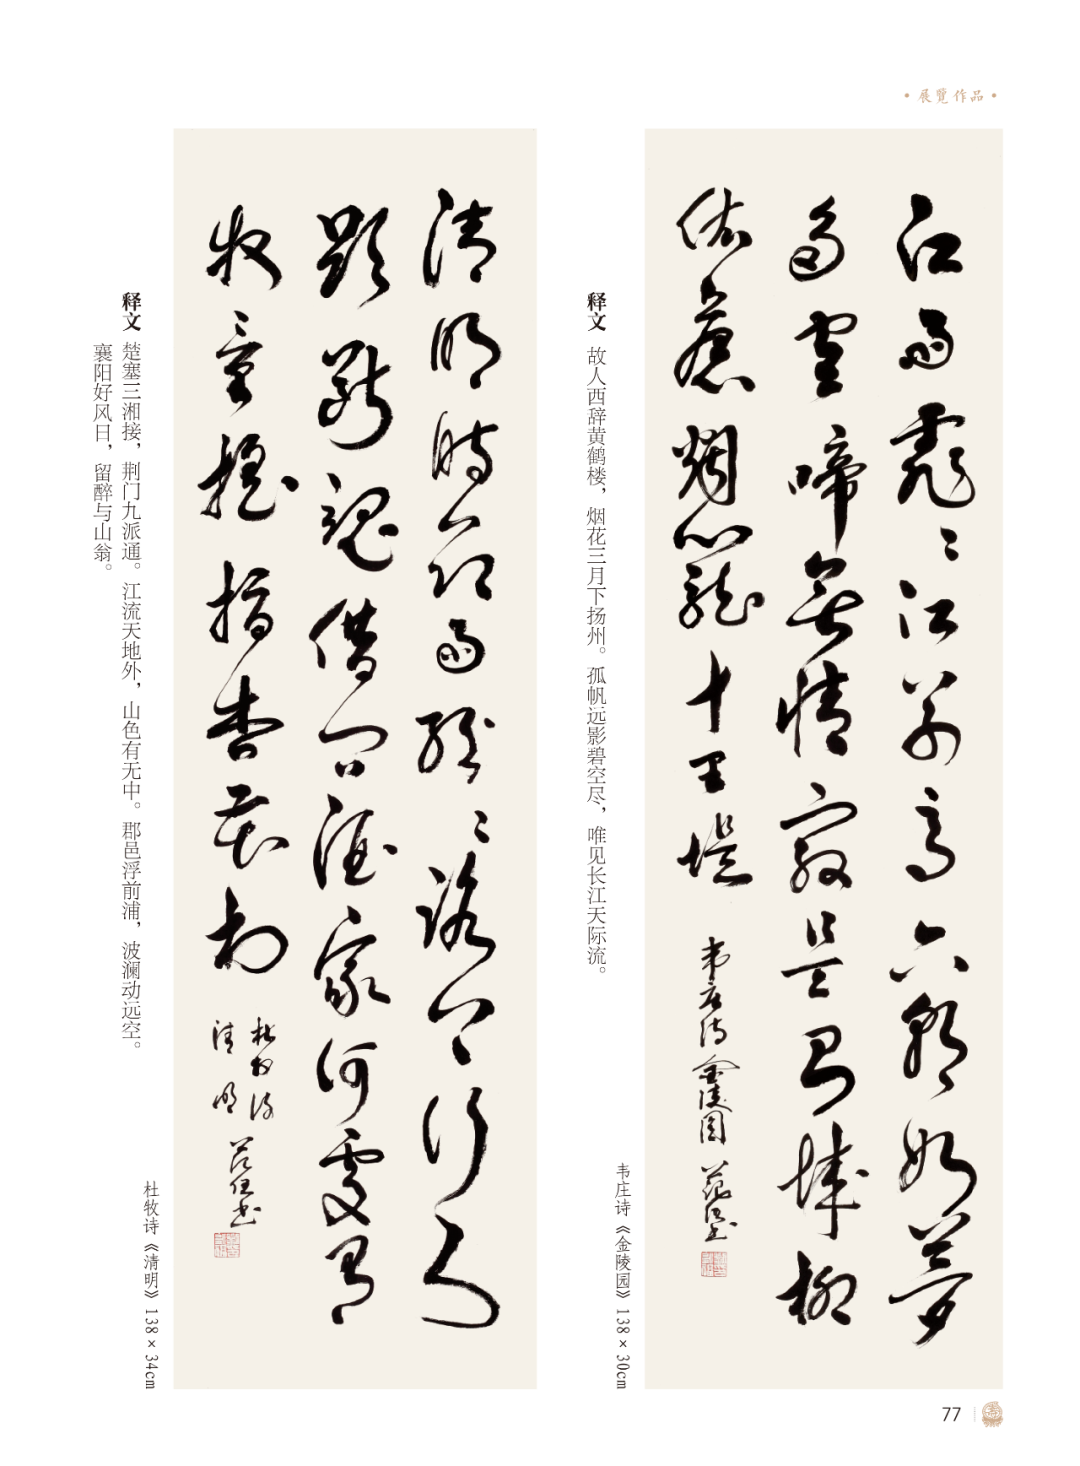 ·展覽作品·
江雨霏〻江草齐六朝如夢
鸟空啼無情最是台城柳
依舊烟籠十里堤
韦庄诗金陵图
释文 故人西辞黄鹤楼，烟花三月下扬州。孤帆远影碧空尽，唯见长江天际流。
韦庄诗《金陵园》138×30cm
清明時节雨紛〻路上行人
欲断魂借问酒家何處有
牧童摇指杏花村
杜牧诗
清明
释文 楚塞三湘接，荆门九派通。江流天地外，山色有无中。郡邑浮前浦，波澜动远空。
襄阳好风日，留醉与山翁。
杜牧诗《清明》138×34cm
77